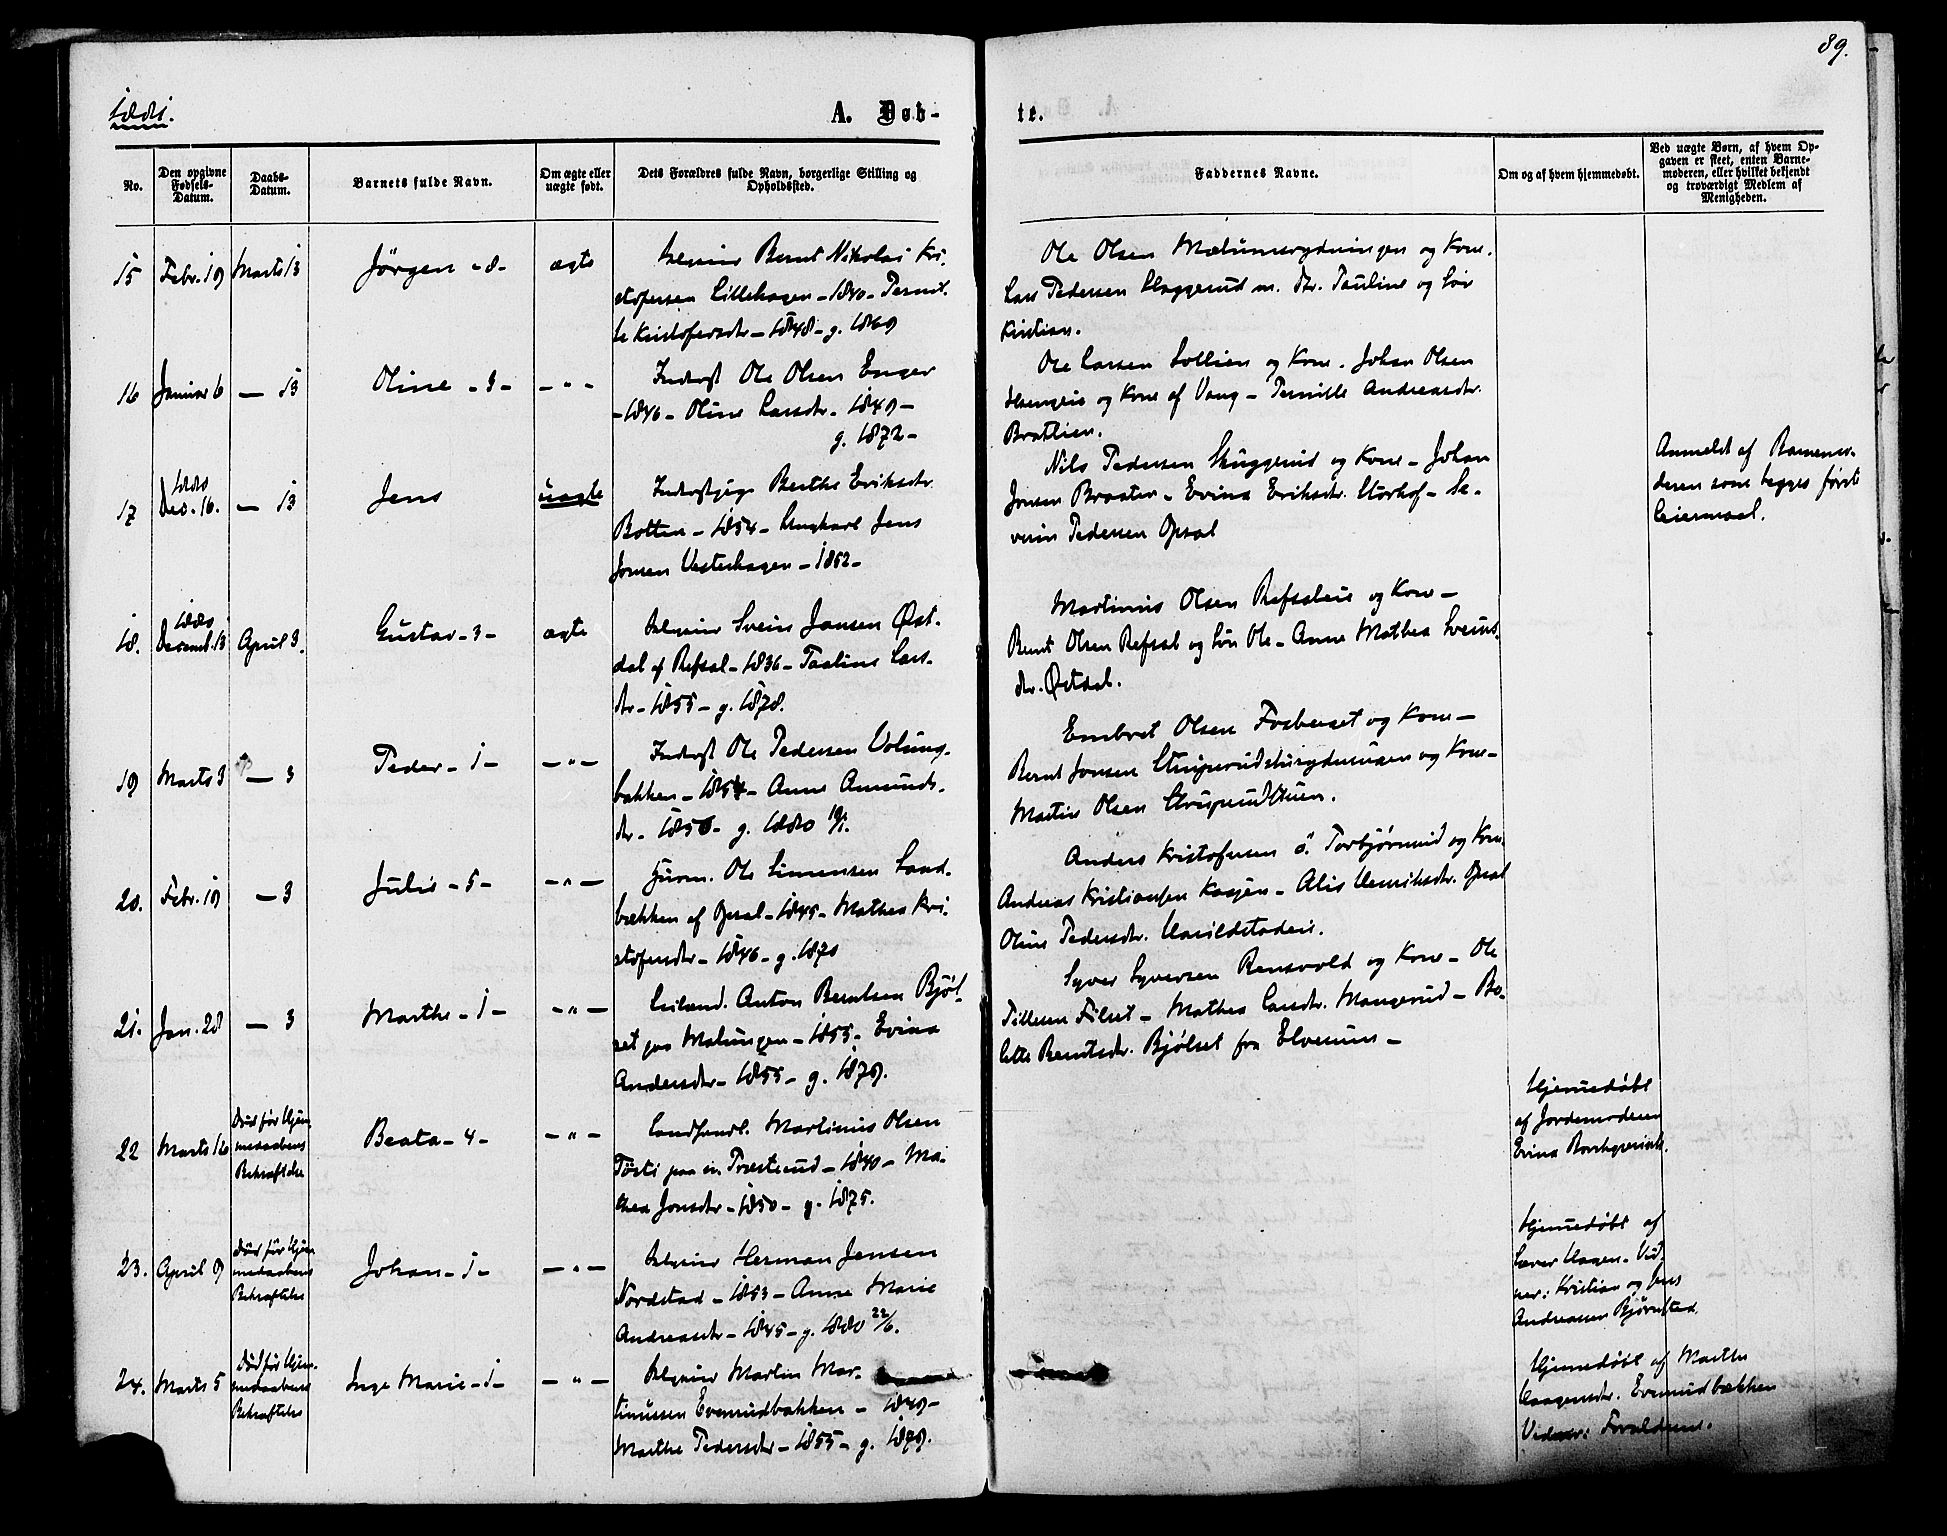 89.
1881.
A. Døb-
te.
No.
Den opgivne
Fødsels-
Datum.
Daabs-
Datum.
Barnets fulde Navn.
Om ægte eller
uægte født.
Dets Forældres fulde Navn, borgerlige Stilling og
Opholdssted.
Faddernes Navne.
Om og af hvem hjemmedøbt.
Ved uægte Børn, af hvem Op-
gaven er skeet, enten Barne-
moderen, eller hvilket bekjendt
og troværdigt Medlem af
Menigheden.
15 Febr. 19 Marts 13 Jörgen - 8 - ægte
Selveier Bernt Nikolai Kri-
stofersen Lillehagen - 1840 - Pernil-
le Kristofersdtr - 1848 - g. 1869
Ole Olsen Mælumsrydningen og Kone.
Lars Pedersen Skaggerud m. dtr. Pauline og Søn
Kristian.
16 Januar 6 — 13 Oline - 3 - - " -
Inderst Ole Olsen Enger
- 1846 - Oline Larsdtr. 1849 -
g. 1872 -
Ole Larsen Sollien og Kone. Johan Olsen
og Kone af Vang - Pernille Andreasdtr.
Brattlien.
17 1880 Dec. 16. — 13 Jens uægte
Inderstpige Berthe Eriksdtr.
Botten - 1854 - Ungkarl Jens
Jonsen Vesterhagen - 1862 -
Nils Pedersen Skuggerud og Kone - Johan
Jonsen Braaten - Evina Eriksdtr. Storhof - Se-
verin Pedersen Opsal
Anmeldt af Barnemo-
deren som begges første
Leiermaal.
18. 1880 Decemb. 13 April 3. Gustav - 3 - ægte
Selveier Svein Jansen Øst-
dal af Refsal - 1836 - Pauline Lars-
dtr - 1855 - g. 1878.
Martinus Olsen Refsaleie og Kone -
Bernt Olsen Refsal og Søn Ole - Anne Mathea Sveins-
dtr. Østdal.
19 Marts 3 — 3 Peder - 1 - - " -
Inderst Ole Pedersen Volung-
bakken - 1854 - Anne Amunds-
dtr. - 1856 - g. 1880 19/1.
Embret Olsen Fosberget og Kone -
Bernt Jonsen og Kone -
Martin Olsen Struperudstuen.
20. Febr. 19 — 3 Julie - 5 - - " -
Husm. Ole Simensen Sand-
bækken af Opsal - 1845 - Mathea Kri-
stofersdtr - 1846 - g. 1870
Anders Kristofersen ö. Torbjörnrud og Kone
Andreas Kristiansen Kasjen - Alis Henriksdtr. Opsal
Oline Pedersdtr. Harildstadeie.
21. Jan. 28 — 3 Marthe - 1 - - " -
Leilænd. Anton Berntsen Bjöl-
set paa Malungen - 1853 - Evina
Andersdtr - 1855 - g. 1879.
Syver Syversen Rensvold og Kone - Ole
Tillesen Filset - Mathea Larsdtr. Mangerud - Bo-
lette Berntsdtr. Bjølset fra Elverum -
22 Marts 16 Död før Hjem-
medaabens
Bekræftelse
Beata - 4 - - " -
Landhandl. Martinus Olsen
Tösti paa en Træstrud - 1840 - Ma-
thea Jonsdtr - 1850 - g. 1875.
Hjemmedöbt
af Jordemoderen
Evina
23. April 9 Död før Hjem-
medaabens
Bekræftelse
Johan - 1 - - " -
Selveier Herman Jensen
Nordstad - 1853 - Anne Marie
Andreasdtr - 1845 - g. 1880 22/6.
Hjemmedöbt af
Lærer Hagen. Vid-
ner: Kristian og Jens
Andreasen Bjørnstad.
24. Marts 5 Död før Hjem-
medaabens
Bekræftelse
Inge Marie - 1 - - " -
Selveier Martin Mar-
tinussen Evenrudbakken - 1849 -
Marthe Pedersdtr - 1855 - g. 1879.
Hjemmedöbt af Marthe
Haagensdtr. Evenrudbækken
Vidner: Forældrene.